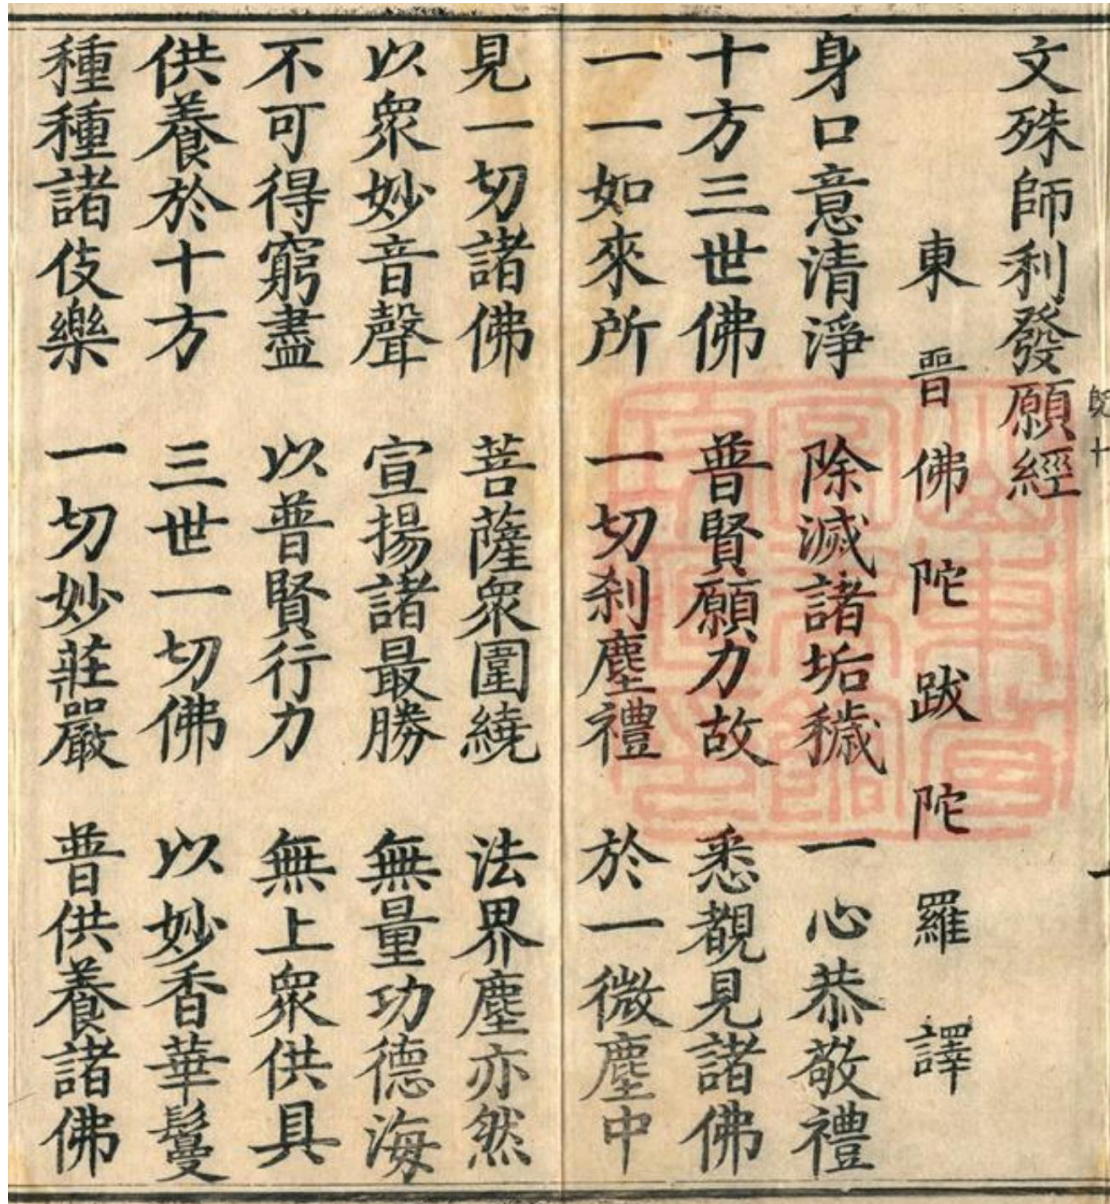 文殊師利發願經
東晉佛陀跋陀羅譯
身口意清淨　除滅諸垢穢　一心恭敬禮
十方三世佛　普賢願力故　悉覩見諸佛
一一如來所　一切刹塵禮　於一微塵中
見一切諸佛　菩薩衆圍繞　法界塵亦然
以衆妙音聲　宣揚諸最勝　無量功德海
不可得窮盡　以普賢行力　無上衆供具
供養於十方　三世一切佛　以妙香華鬘
種種諸伎樂　一切妙莊嚴　普供養諸佛